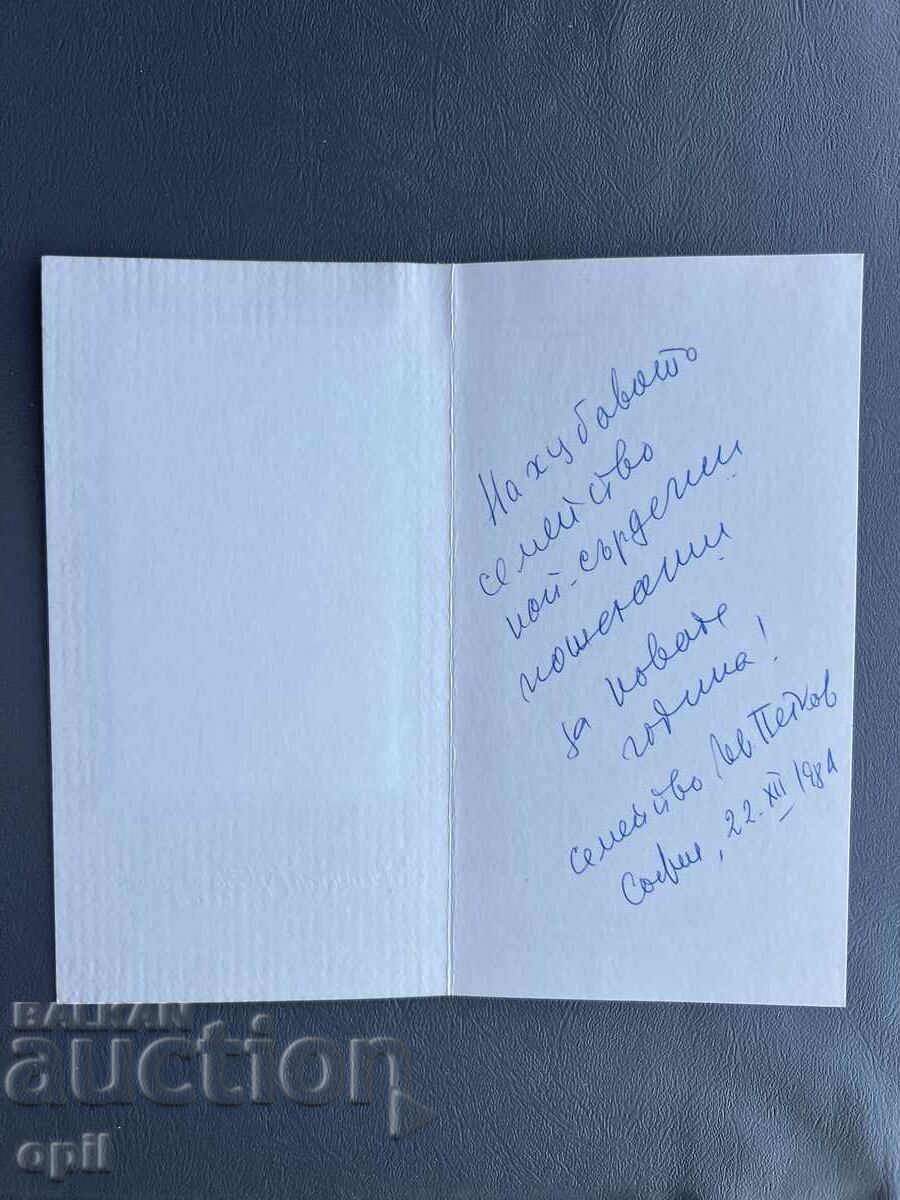 На хубавото
семейство
най-сърдечни
пожелания
за новата
година!
семейство Пв. Петков
София, 22. XII 1981
BALKAN
auction
opil